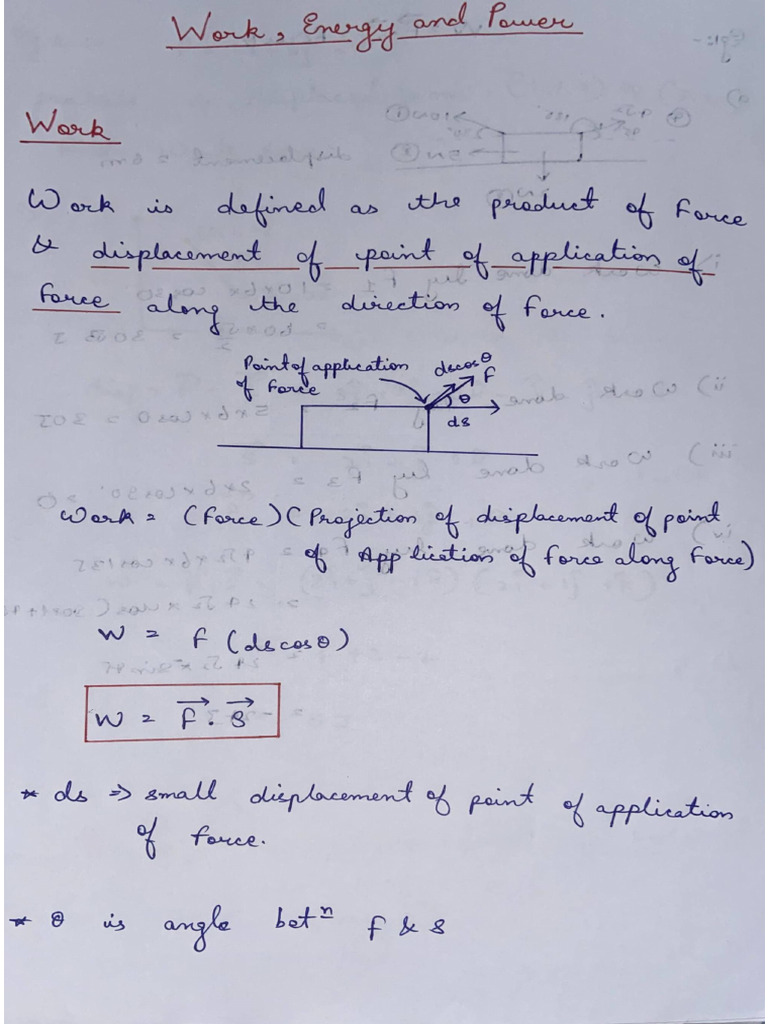 Work, Energy and Power
Work
Work is defined as the product of Force
& displacement of point of application of
force along the direction of force.
Point of application
of Force
dscosθ
F
θ
ds
Work = (Force) (Projection of displacement of point
of Application of force along Force)
W = F (dscosθ)
W = F⃗ . S⃗
* ds ⇒ small displacement of point of application
of force.
* θ is angle betⁿ F & S